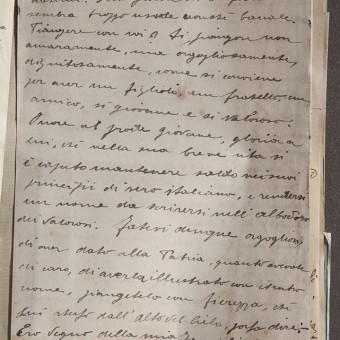 sembra troppo usuale
Piangere con voi? Si, piangere non
amaramente, ma orgogliosamente,
dignitosamente, come si conviene
per aver un figliolo, un fratello, un
amico, si giovane e si valoroso.
Onore al prode giovane, gloria a
lui, chi nella sua breve vita si
è saputo mantenere saldo nei suoi
principii di vero italiano, e rendersi
un nome da scriversi nell'albo d'oro
dei valorosi. Fatevi dunque orgogliosi,
di aver dato alla Patria, quanto avevate
di caro, di averla illustrato con
nome, piangetelo con fierezza, chè
lui stesso dall'alto del Cielo, possa dire:
Ero degno della mia